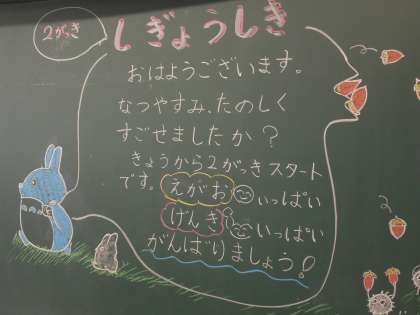 2がっき
しぎょうしき
おはようございます。
なつやすみ、たのしく
すごせましたか?
きょうから2がっきスタート
です。えがおいっぱい
げんきいっぱい
がんばりましょう!